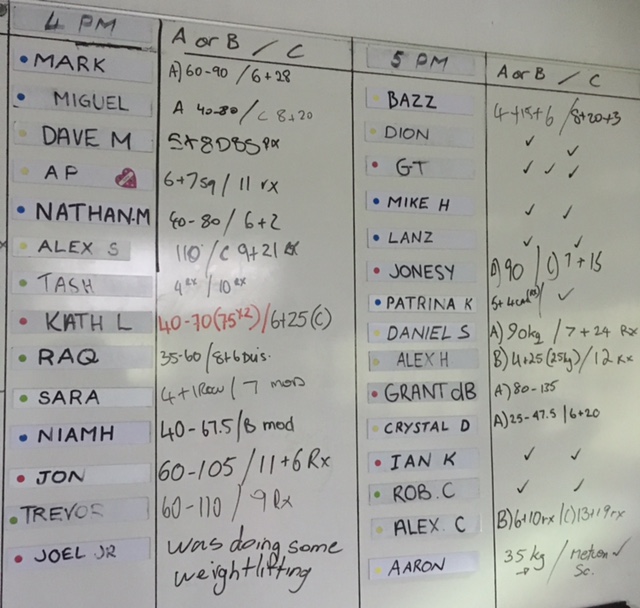 4 PM
A or B / C
MARK
A) 60-90 / 6+28
MIGUEL
A 40-80 / C 8+20
DAVE M
AP
6+7sq / 11 rx
NATHAN.M
40-80 / 6+2
ALEX S
110 / C 9+21 RX
TASH
4 RX / 10 RX
KATH L
40-70 (75x2) / 6+25 (C)
RAQ
35-60 / 8+6 Dus.
SARA
4+1Row / 7 mod
NIAMH
40-67.5 / 8 mod
JON
60-105 / 11+6 Rx
TREVOR
60-110 / 9 Rx
JOEL JR
was doing some
weightlifting
5 PM
A or B / C
BAZZ
4+15+6 / 8+20+3
DION
✓ ✓
GT
✓ ✓ ✓
MIKE H
✓ ✓
LANZ
✓ ✓
JONESY
A) 90 / C) 7+15
PATRINA K
✓
DANIEL S
A) 90kg / 7+24 Rx
ALEX H
B) 4+25 (25kg) / 12 Rx
GRANT dB
A) 80-135
CRYSTAL D
A) 25-47.5 / 6+20
IAN K
✓ ✓
ROB.C
✓ ✓
ALEX. C
B) 6+10 rx / C) 13+19 rx
AARON
35 kg / Metcon ✓
Sc.